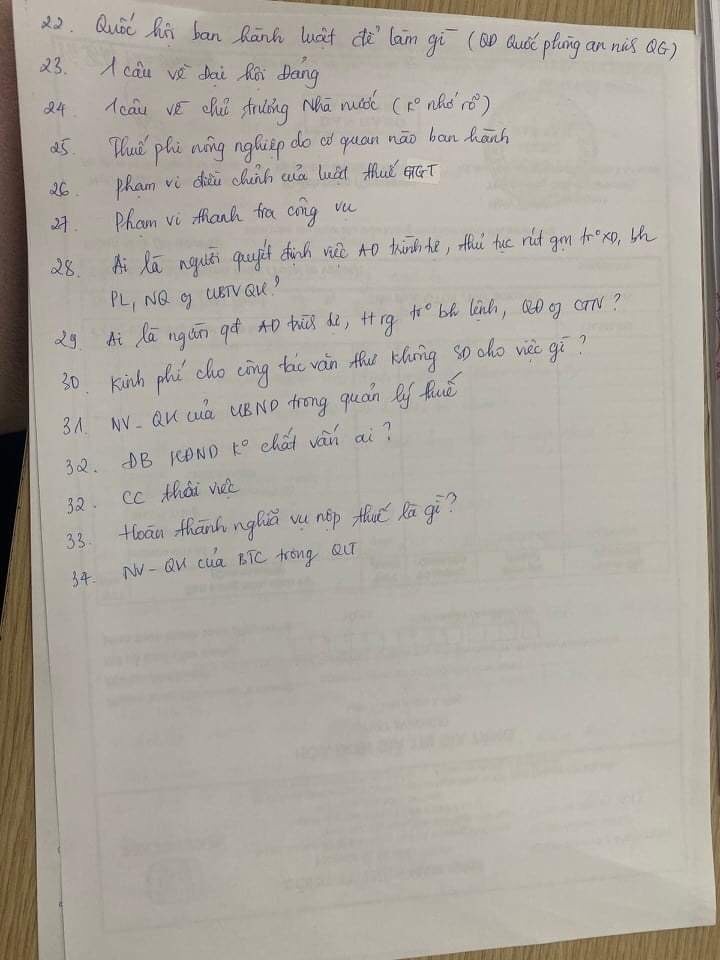 22. Quốc hội ban hành luật để làm gì (QĐ Quốc phòng an ninh QG)
23. 1 câu về Đại hội Đảng
24. 1 câu về chủ trương Nhà nước (K° nhớ rõ)
25. Thuế phí nông nghiệp do cơ quan nào ban hành
26. Phạm vi điều chỉnh của luật thuế GTGT
27. Phạm vi thanh tra công vụ
28. Ai là người quyết định việc AD trình tự, thủ tục rút gọn tr° XD, bh
PL, NQ of UBTVQH?
29. Ai là người qđ AD trình tự, tt rg tr° bh lệnh, QĐ of CTN?
30. Kinh phí cho công tác văn thư không SD cho việc gì?
31. NV - QH của UBND trong quản lý thuế
32. ĐB HĐND K° chất vấn ai?
32. CC thôi việc
33. Hoàn thành nghĩa vụ nộp thuế là gì?
34. NV - QH của BTC trong QLT